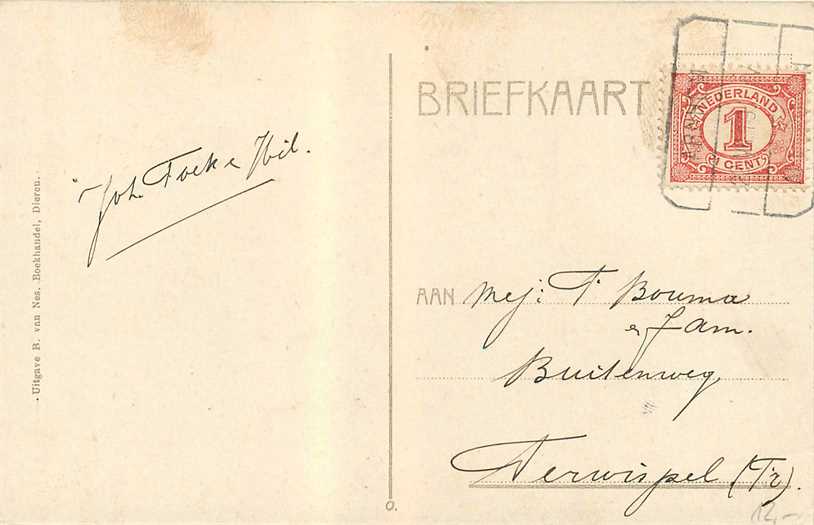 BRIEFKAART
NEDERLAND
1
CENT
Joh. Foek & Wil.
AAN Mej: T. Bouma
en fam.
Buitenweg
Terwispel (Fr).
Uitgave R. van Nes. Boekhandel, Dieren.
O.
12,-